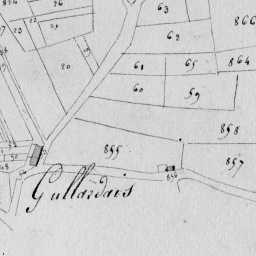 63
866
26
62
25
61
65
864
20
60
59
858
855
857
856
Gullardais